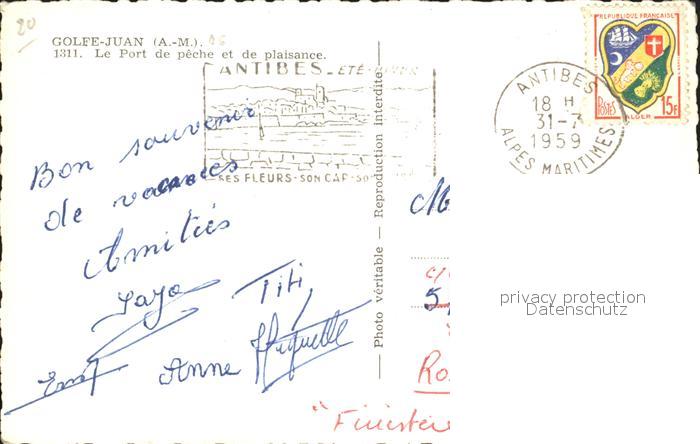 20
GOLFE-JUAN (A.-M.). 06
1311. Le Port de pêche et de plaisance.
ANTIBES - ÉTÉ-HIVER
SES FLEURS - SON CAP - SO
ANTIBES
18 H
31-7
1959
ALPES MARITIMES
REPUBLIQUE FRANÇAISE
POSTES
ALGER
15F
— Photo véritable — Reproduction interdite —
Bon souvenir
de vacances
Amitiés
Titi
Anne Huguette
5
Ro
"Finistère
privacy protection
Datenschutz